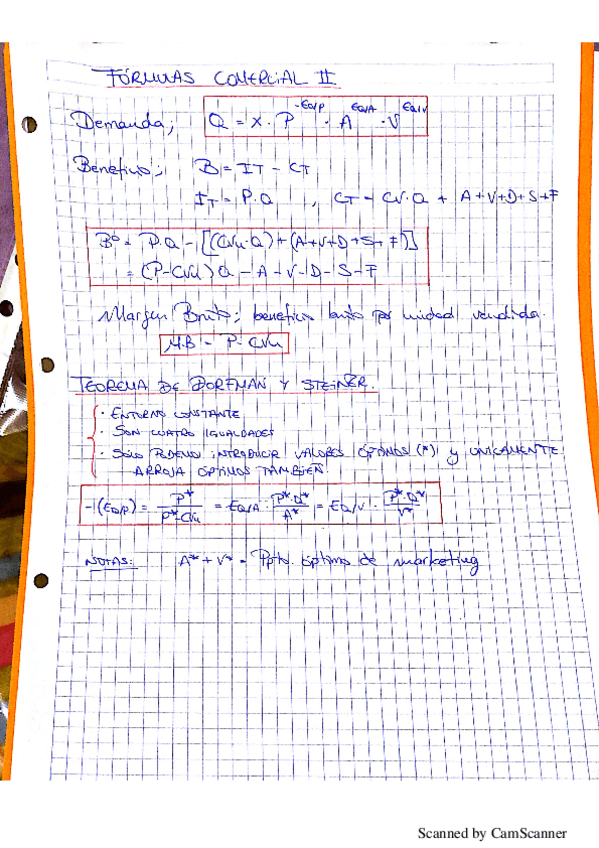 FÓRMULAS COMERCIAL II
Demanda; Q = X · P^-EQ/P · A^EQ/A · V^EQ/V
Beneficio; B = IT - CT
IT = P.Q , CT = CV.Q + A+V+D+S+F
Bº = P.Q - [(CVu·Q)+(A+V+D+S+F)]
= (P-CVu)Q - A - V - D - S - F
Margen Bruto; beneficio bruto por unidad vendida.
M.B = P - CVu
TEOREMA DE DORFMAN Y STEINER.
· ENTORNO CONSTANTE
· SON CUATRO IGUALDADES
· SOLO PODEMOS INTRODUCIR VALORES ÓPTIMOS (*) y UNICAMENTE
ARROJA ÓPTIMOS TAMBIÉN.
-(EQ/P) = P*/P*-CVu = EQ/A · P*·Q*/A* = EQ/V · P*·Q*/V*
NOTAS: A* + V* = Ppto. óptimo de marketing
Scanned by CamScanner